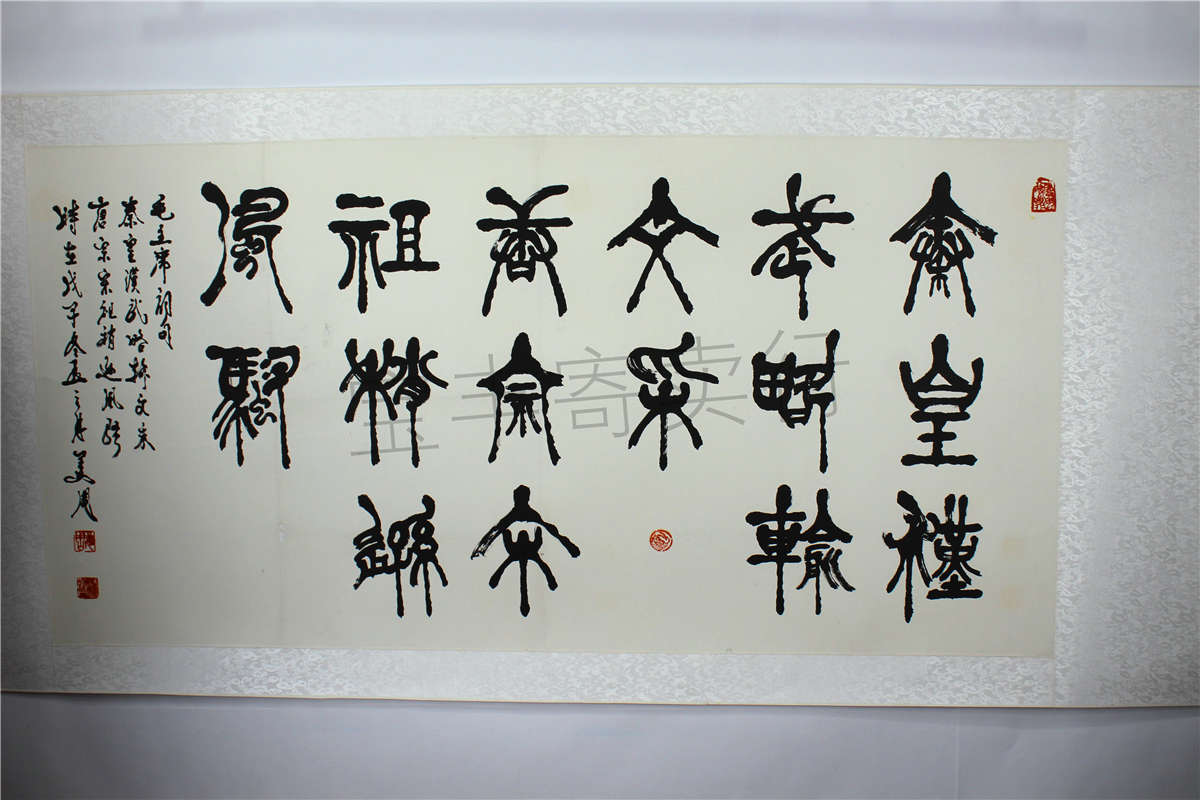 秦皇漢
武略輸
文采
唐宗宋
祖稍遜
風騷
毛主席詞句
秦皇漢武略輸文采
唐宗宋祖稍遜風騷
時在戊午冬
丰寄卖行